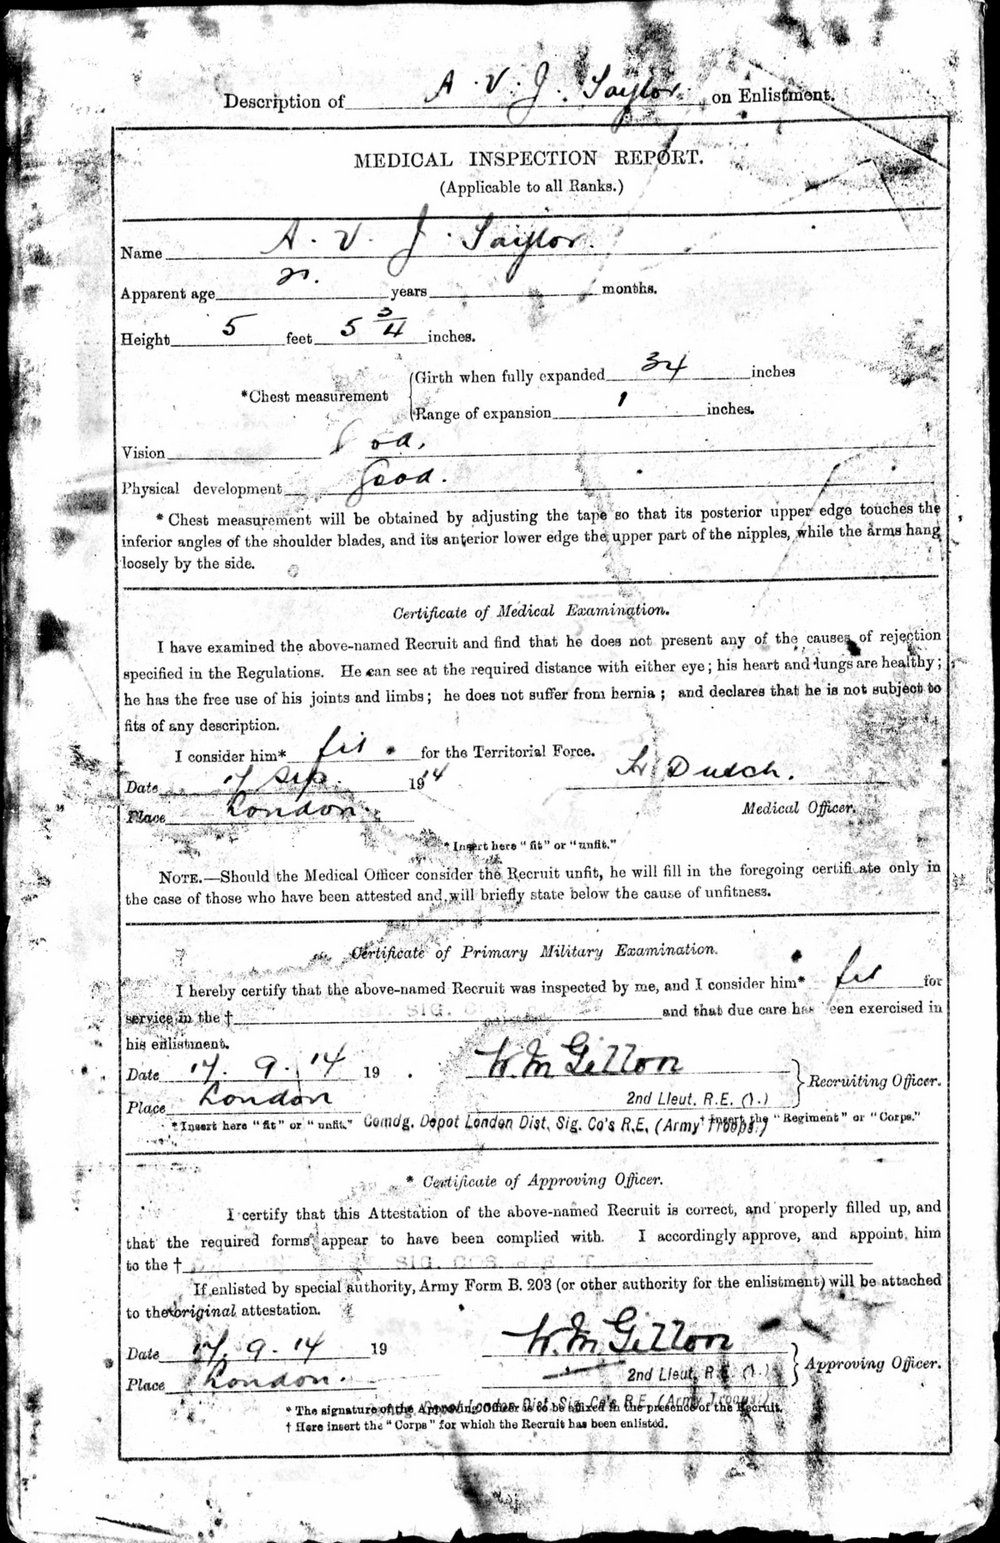 Description of A. V. J. Taylor on Enlistment.
MEDICAL INSPECTION REPORT.
(Applicable to all Ranks.)
Name A. V. J. Taylor.
Apparent age years months.
Height 5 feet 5 3/4 inches.
*Chest measurement
Girth when fully expanded 34 inches
Range of expansion 1 inches.
Vision
Physical development Good.
* Chest measurement will be obtained by adjusting the tape so that its posterior upper edge touches the
inferior angles of the shoulder blades, and its anterior lower edge the upper part of the nipples, while the arms hang
loosely by the side.
Certificate of Medical Examination.
I have examined the above-named Recruit and find that he does not present any of the causes of rejection
specified in the Regulations. He can see at the required distance with either eye; his heart and lungs are healthy;
he has the free use of his joints and limbs; he does not suffer from hernia; and declares that he is not subject to
fits of any description.
I consider him* fit. for the Territorial Force.
Date 17 Sep. 1914
Place London
Dutch.
Medical Officer.
* Insert here "fit" or "unfit."
NOTE.—Should the Medical Officer consider the Recruit unfit, he will fill in the foregoing certificate only in
the case of those who have been attested and will briefly state below the cause of unfitness.
Certificate of Primary Military Examination.
I hereby certify that the above-named Recruit was inspected by me, and I consider him* fit for
service in the † SIG. and that due care has een exercised in
his enlistment.
Date 17. 9. 14 19
W. M Gillon
Recruiting Officer.
Place London
2nd Lieut. R.E. (T.)
* Insert here "fit" or "unfit." Comdg. Depot London Dist. Sig. Co's R.E. (Army Troops) † Insert the "Regiment" or "Corps."
* Certificate of Approving Officer.
I certify that this Attestation of the above-named Recruit is correct, and properly filled up, and
that the required forms appear to have been complied with. I accordingly approve, and appoint him
to the † SIG. COS.
If enlisted by special authority, Army Form B. 203 (or other authority for the enlistment) will be attached
to the original attestation.
Date 17. 9. 14 19
W. M Gillon
Approving Officer.
Place London.
2nd Lieut. R.E. (T.)
* The signature of the Approving Officer is to be affixed in the presence of the Recruit.
† Here insert the "Corps" for which the Recruit has been enlisted.